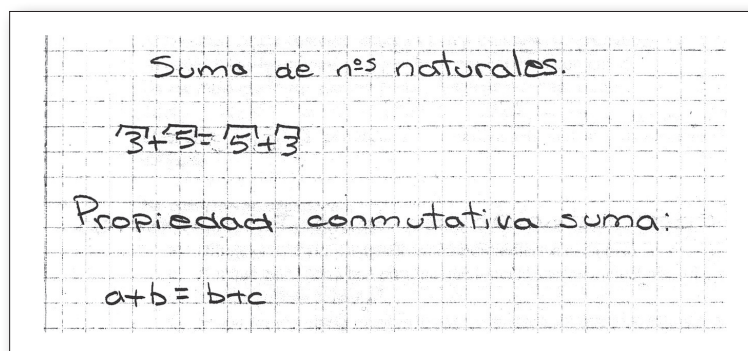 Suma de nºs naturales.
√3+√5=√5+√3
Propiedad conmutativa suma:
a+b = b+c